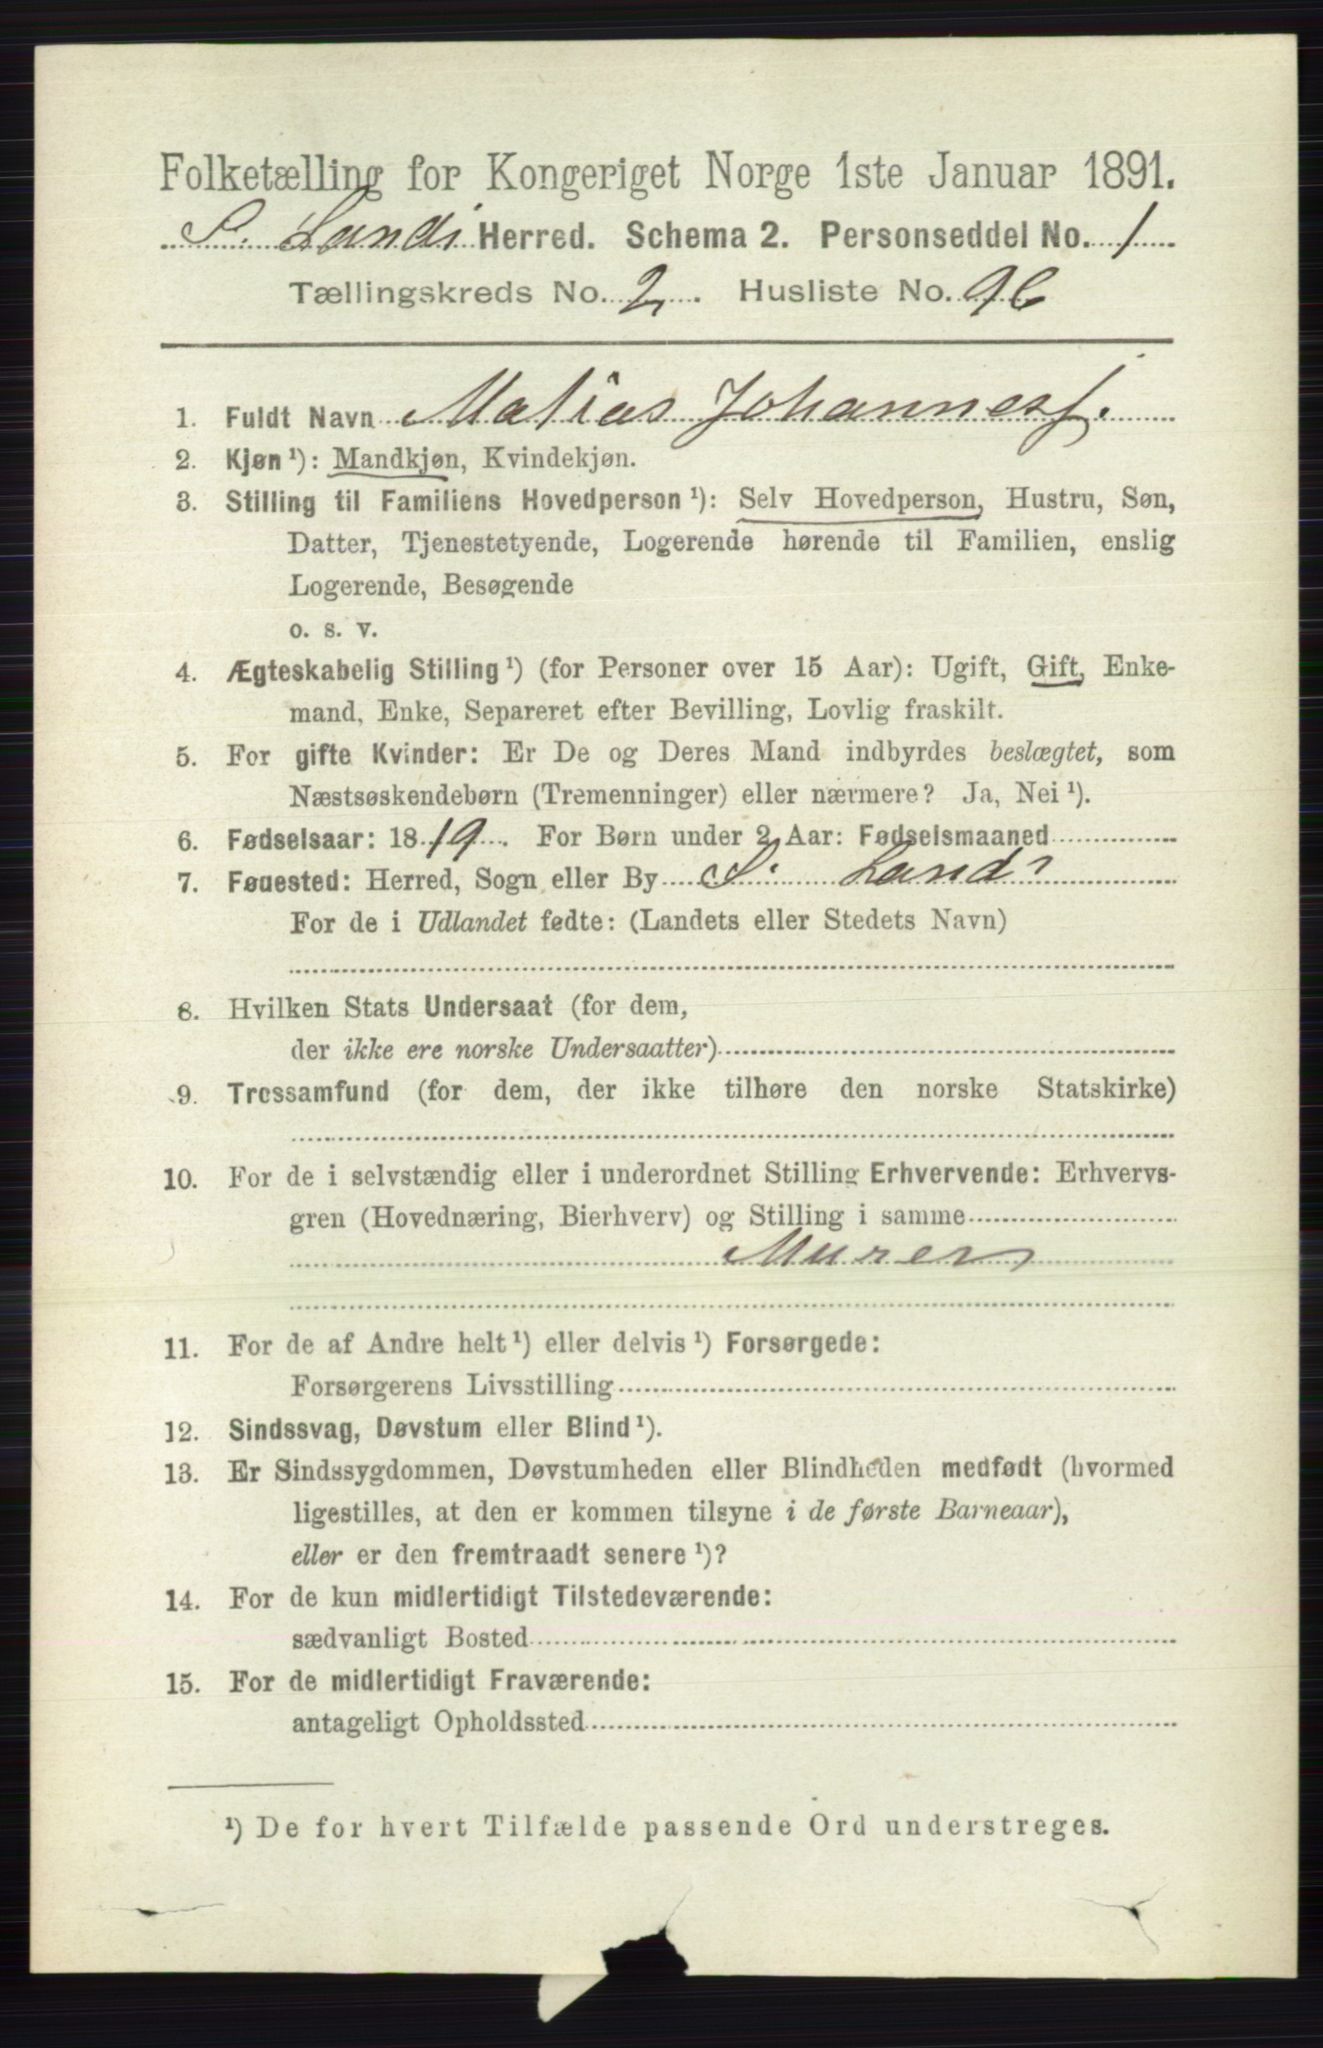 Folketælling for Kongeriget Norge 1ste Januar 1891.
S. Lands Herred. Schema 2. Personseddel No. 1
Tællingskreds No. 2. Husliste No. 96
1. Fuldt Navn Matias Johannesf.
2. Kjøn ¹): Mandkjøn, Kvindekjøn.
3. Stilling til Familiens Hovedperson ¹): Selv Hovedperson, Hustru, Søn,
Datter, Tjenestetyende, Logerende hørende til Familien, enslig
Logerende, Besøgende
o. s. v.
4. Ægteskabelig Stilling ¹) (for Personer over 15 Aar): Ugift, Gift, Enke-
mand, Enke, Separeret efter Bevilling, Lovlig fraskilt.
5. For gifte Kvinder: Er De og Deres Mand indbyrdes beslægtet, som
Næstsøskendebørn (Tremenninger) eller nærmere? Ja, Nei ¹).
6. Fødselsaar: 1819. For Børn under 2 Aar: Fødselsmaaned
7. Føuested: Herred, Sogn eller By S. Land
For de i Udlandet fødte: (Landets eller Stedets Navn)
8. Hvilken Stats Undersaat (for dem,
der ikke ere norske Undersaatter)
9. Trossamfund (for dem, der ikke tilhøre den norske Statskirke)
10. For de i selvstændig eller i underordnet Stilling Erhvervende: Erhvervs-
gren (Hovednæring, Bierhverv) og Stilling i samme
Murer
11. For de af Andre helt ¹) eller delvis ¹) Forsørgede:
Forsørgerens Livsstilling
12. Sindssvag, Døvstum eller Blind ¹).
13. Er Sindssygdommen, Døvstumheden eller Blindheden medfødt (hvormed
ligestilles, at den er kommen tilsyne i de første Barneaar),
eller er den fremtraadt senere ¹)?
14. For de kun midlertidigt Tilstedeværende:
sædvanligt Bosted
15. For de midlertidigt Fraværende:
antageligt Opholdssted
¹) De for hvert Tilfælde passende Ord understreges.